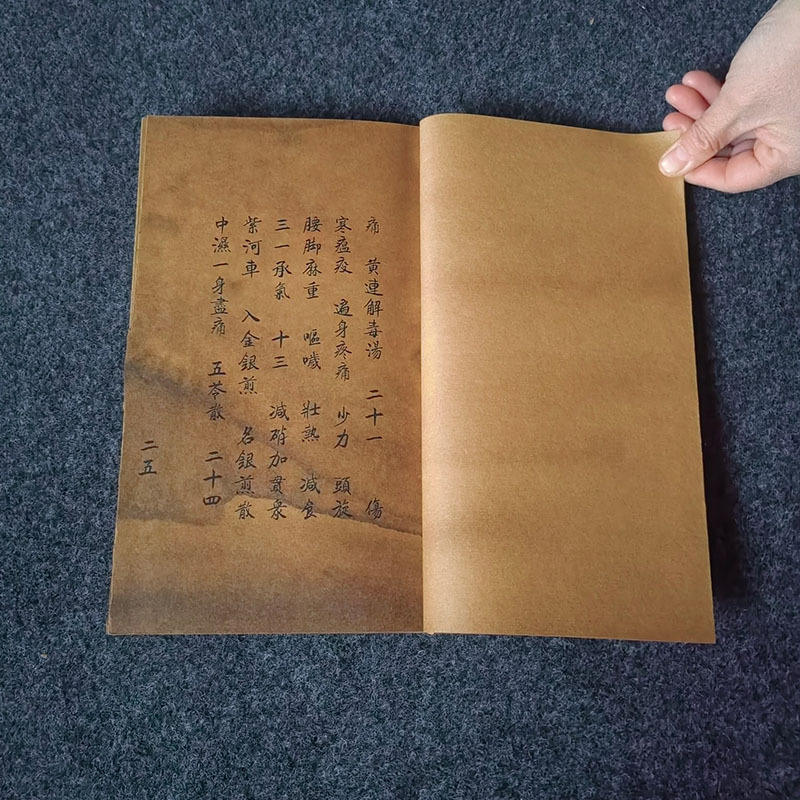 痛　黄連解毒湯　二十一　傷
寒瘟疫　遍身疼痛　少力　頭旋
腰脚麻重　嘔噦　壯熱　減食
三一承氣　十三　減硝加貫衆
紫河車　入金銀煎　名銀煎散
中濕一身盡痛　五苓散　二十四
二五